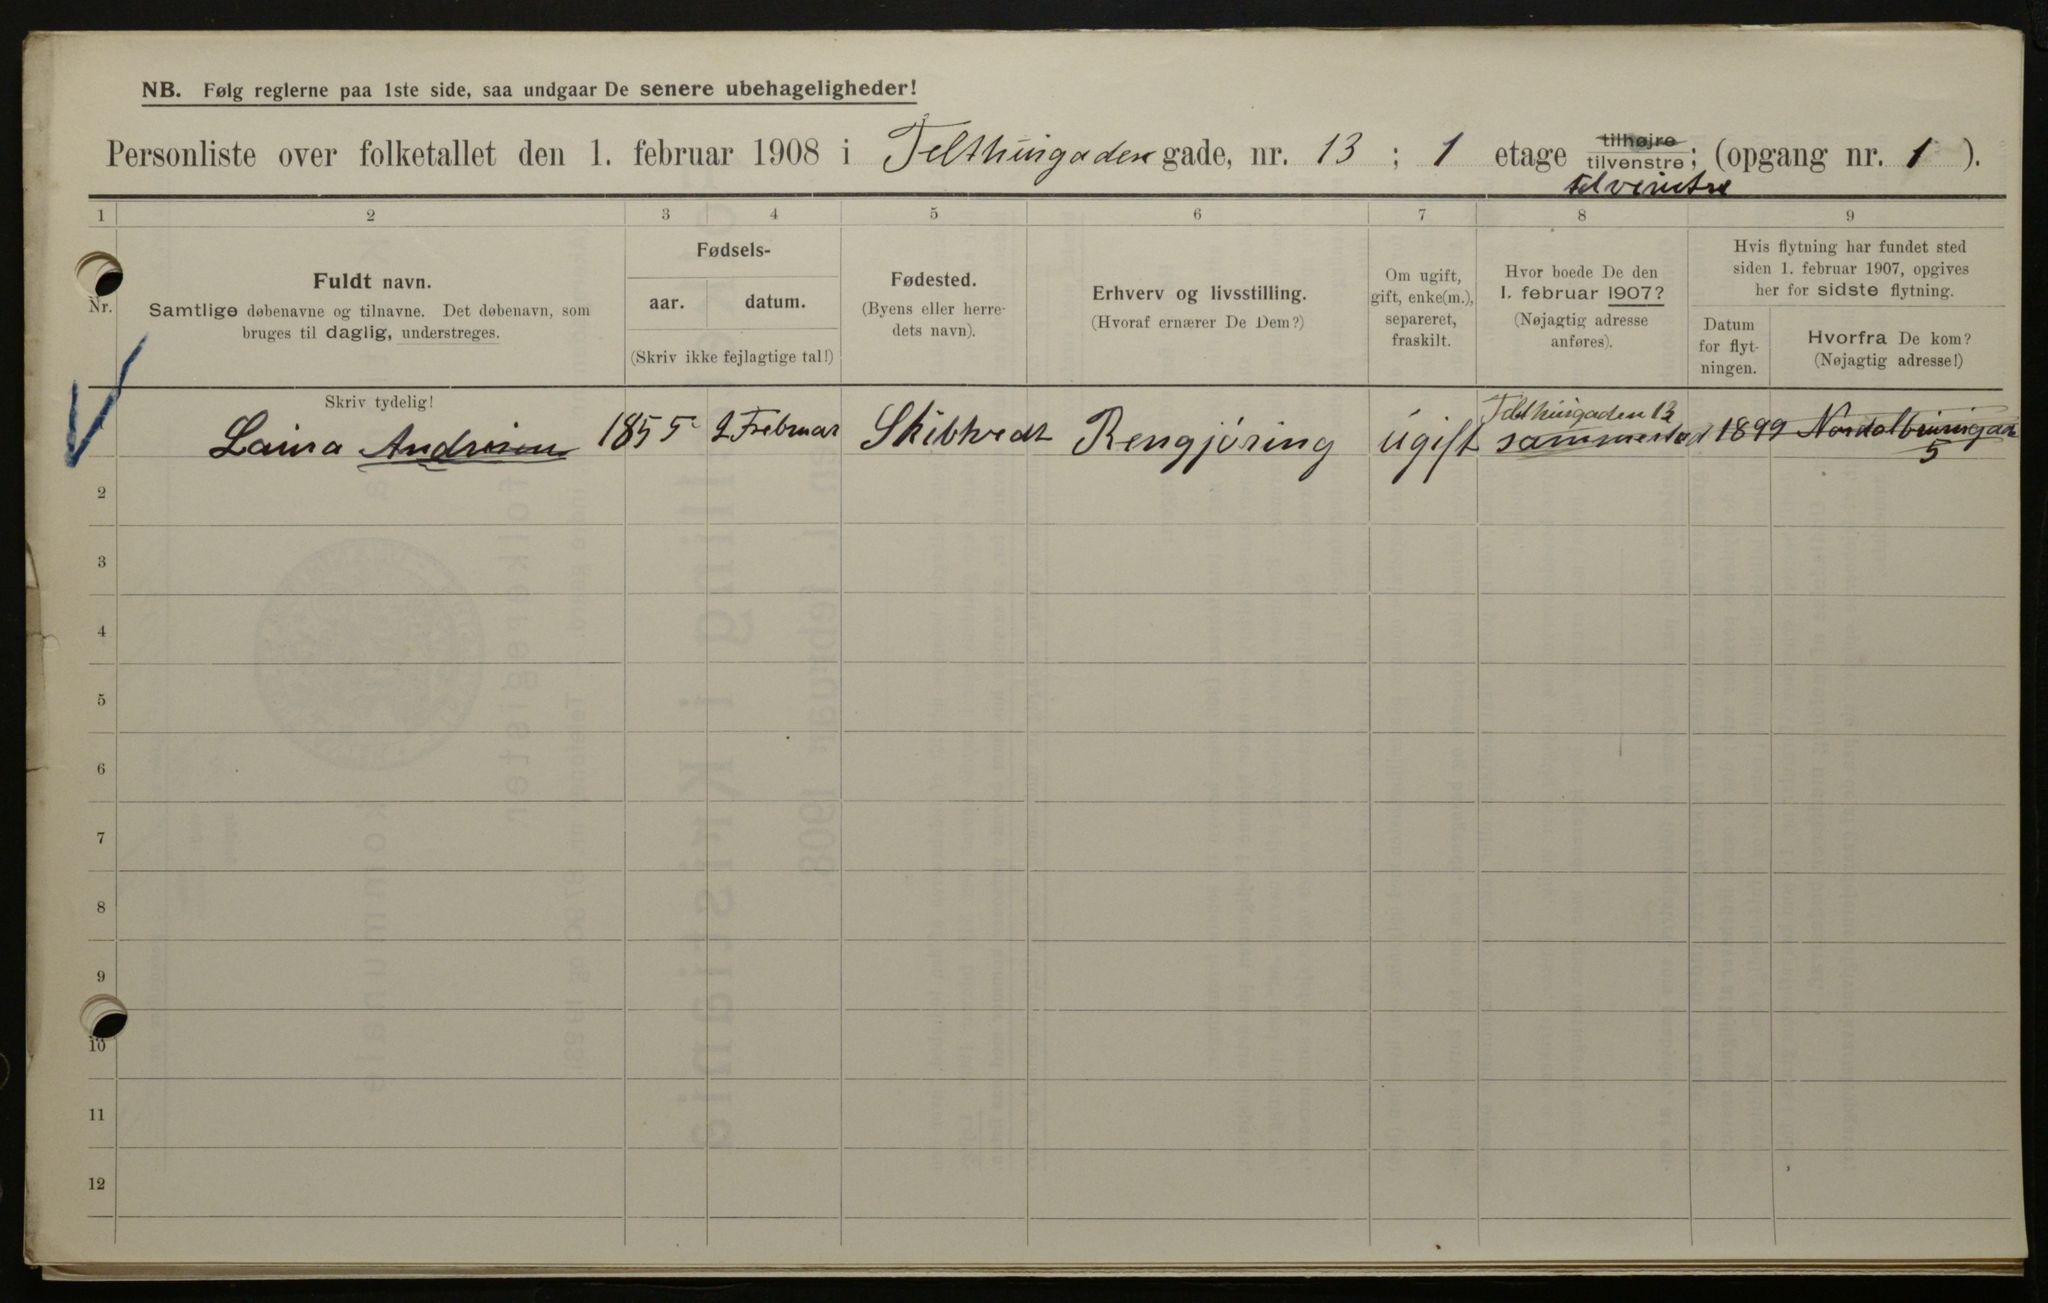 NB. Følg reglerne paa 1ste side, saa undgaar De senere ubehageligheder!
Personliste over folketallet den 1. februar 1908 i Telthusgaden gade, nr. 13 ; 1 etage tilhøjre tilvenstre; (opgang nr. 1 ).
tilvenstre
1 2 3 4 5 6 7 8 9
Nr.
Fuldt navn.
Samtlige døbenavne og tilnavne. Det døbenavn, som
bruges til daglig, understreges.
Skriv tydelig!
Fødsels-
aar. datum.
(Skriv ikke fejlagtige tal!)
Fødested.
(Byens eller herre-
dets navn).
Erhverv og livsstilling.
(Hvoraf ernærer De Dem?)
Om ugift,
gift, enke(m.),
separeret,
fraskilt.
Hvor boede De den
1. februar 1907?
(Nøjagtig adresse
anføres).
Hvis flytning har fundet sted
siden 1. februar 1907, opgives
her for sidste flytning.
Datum
for flyt-
ningen.
Hvorfra De kom?
(Nøjagtig adresse!)
Telthusgaden 13
Laura Andresen 1855 2 Februar Skibtvedt Rengjøring Ugift sammested 1899
5
2
3
4
5
6
7
8
9
10
11
12